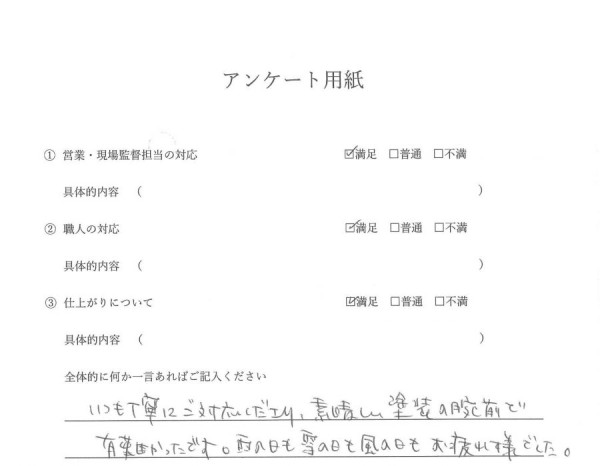 アンケート用紙
① 営業・現場監督担当の対応 ☑満足 ☐普通 ☐不満
具体的内容 ( )
② 職人の対応 ☑満足 ☐普通 ☐不満
具体的内容 ( )
③ 仕上がりについて ☑満足 ☐普通 ☐不満
具体的内容 ( )
全体的に何か一言あればご記入ください
いつも丁寧にご対応くださり、素晴しい塗装の腕前で
有難かったです。雨の日も雪の日も風の日もお疲れ様でした。